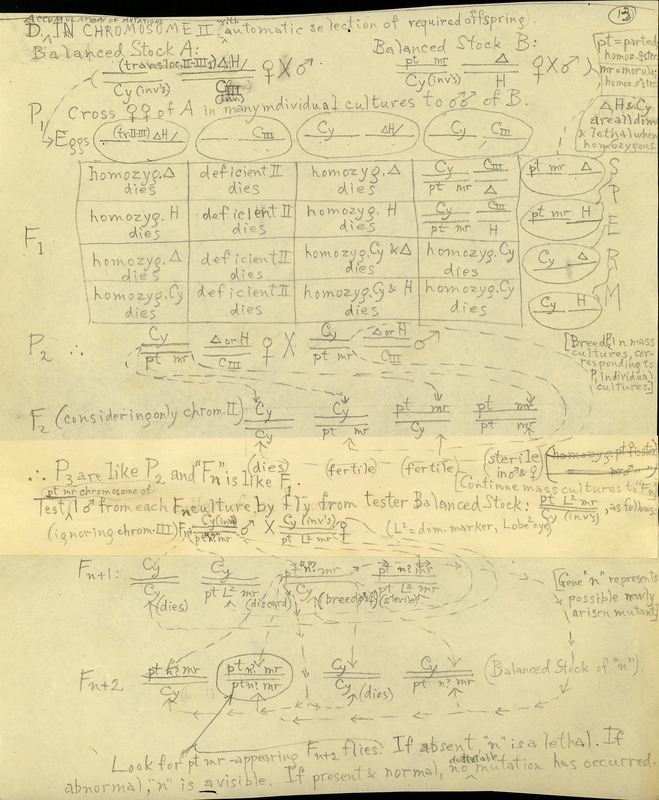 ACCUMULATION OF MUTATIONS
D. IN CHROMOSOME II with automatic selection of required offspring.
13
Balanced Stock A:
Balanced Stock B:
(transloc. II-III) Δ H/
Cy (inv's) CIII (inv's)
♀ X ♂
pt mr Δ
Cy (inv's) H
♀ X ♂
pt = parted
homoz.
mr = morula,
homoz.
P1 Cross ♀♀ of A in many individual cultures to ♂♂ of B.
Δ, H & Cy
are all dom.
& lethal when
homozygous.
Eggs
(tr II-III) ΔH/
CIII
Cy ΔH/
Cy CIII
F1
homozyg. Δ dies
deficient II dies
homozyg. Δ dies
Cy CIII
pt mr Δ
pt mr Δ
homozyg. H dies
deficient II dies
homozyg. H dies
Cy CIII
pt mr H
pt mr H
homozyg. Δ dies
deficient II dies
homozyg. Cy & Δ dies
homozyg. Cy dies
Cy Δ
homozyg. Cy dies
deficient II dies
homozyg. Cy & H dies
homozyg. Cy dies
Cy H
SPERM
P2 ∴
Cy Δ or H
pt mr CIII
♀ X
Cy Δ or H
pt mr CIII
♂
[Breed P2 in mass
cultures, cor-
responding to
P1 individual
cultures.]
F2 (considering only chrom. II)
Cy Cy pt mr pt mr
Cy pt mr Cy pt mr
(dies) (fertile) (fertile) (sterile in ♂ & ♀)
∴ P3 are like P2 and "Fn" is like F1
[Continue mass cultures to "Fn"]
pt mr chromosome of
Test 1 ♂ from each Fn culture by fly from tester Balanced Stock: pt L² mr
Cy (inv's)
, as follows:
(ignoring chrom. III) Fn
Cy (inv's)
pt "n"? mr
♂ X
Cy (inv's)
pt L² mr
♀
(L² = dom. marker, Lobe² eye)
Fn+1:
Cy Cy pt "n"? mr pt n? mr
Cy pt L² mr Cy pt L² mr
(dies) (discard) (breed) (sterile)
[Gene "n" represents
possible newly
arisen mutant]
Fn+2
pt n? mr pt n? mr Cy Cy
Cy pt n? mr Cy pt n? mr
(dies)
(Balanced Stock of "n").
Look for pt mr-appearing Fn+2 flies. If absent, "n" is a lethal. If
abnormal, "n" is a visible. If present & normal, no detectable mutation has occurred.